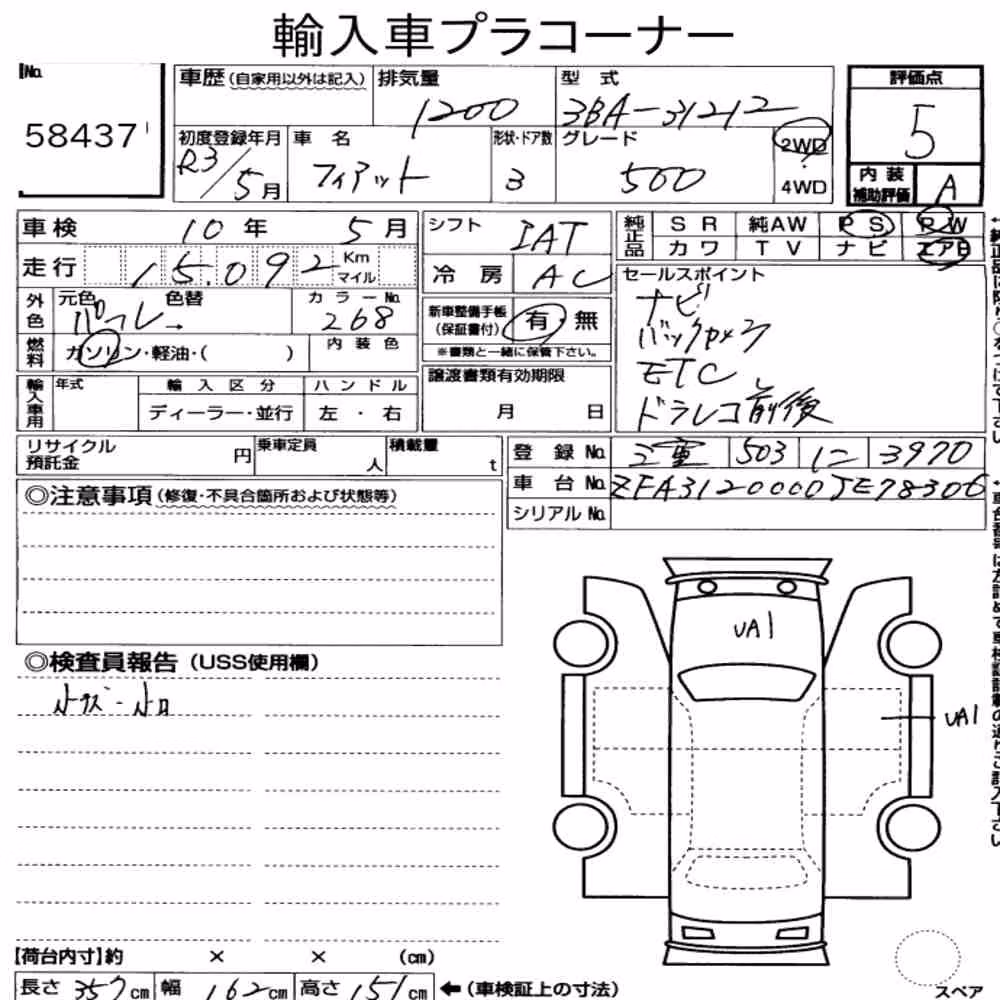 輸入車プラコーナー
No. 58437
車歴(自家用以外は記入) 排気量 1200 型式 3BA-31212 評価点 5
初度登録年月 R3/5月 車名 フィアット 形状・ドア数 3 グレード 500 2WD 4WD 内装補助評価 A
車検 10年 5月 シフト IAT 純正品 SR 純AW PS PW
カワ TV ナビ エアB
走行 15,092 Km マイル 冷房 AC セールスポイント
外色 元色 パフレ 色替 カラーNo. 268 新車整備手帳(保証書付) 有・無
※書類と一緒に保管下さい。
ナビ
バックカメラ
ETC
ドラレコ前後
燃料 ガソリン・軽油・( ) 内装色
輸入車用 年式 輸入区分 ハンドル 譲渡書類有効期限
ディーラー・並行 左・右 月 日
リサイクル預託金 円 乗車定員 人 積載量 t
登録No. 三重 503 に 3970
車台No. ZFA3120000JE78306
シリアルNo.
◎注意事項(修復・不具合箇所および状態等)
◎検査員報告(USS使用欄)
小キズ・小凹
UA1
UA1
【荷台内寸】約 × × (cm)
長さ 357cm 幅 162cm 高さ 151cm ←(車検証上の寸法)
スペア